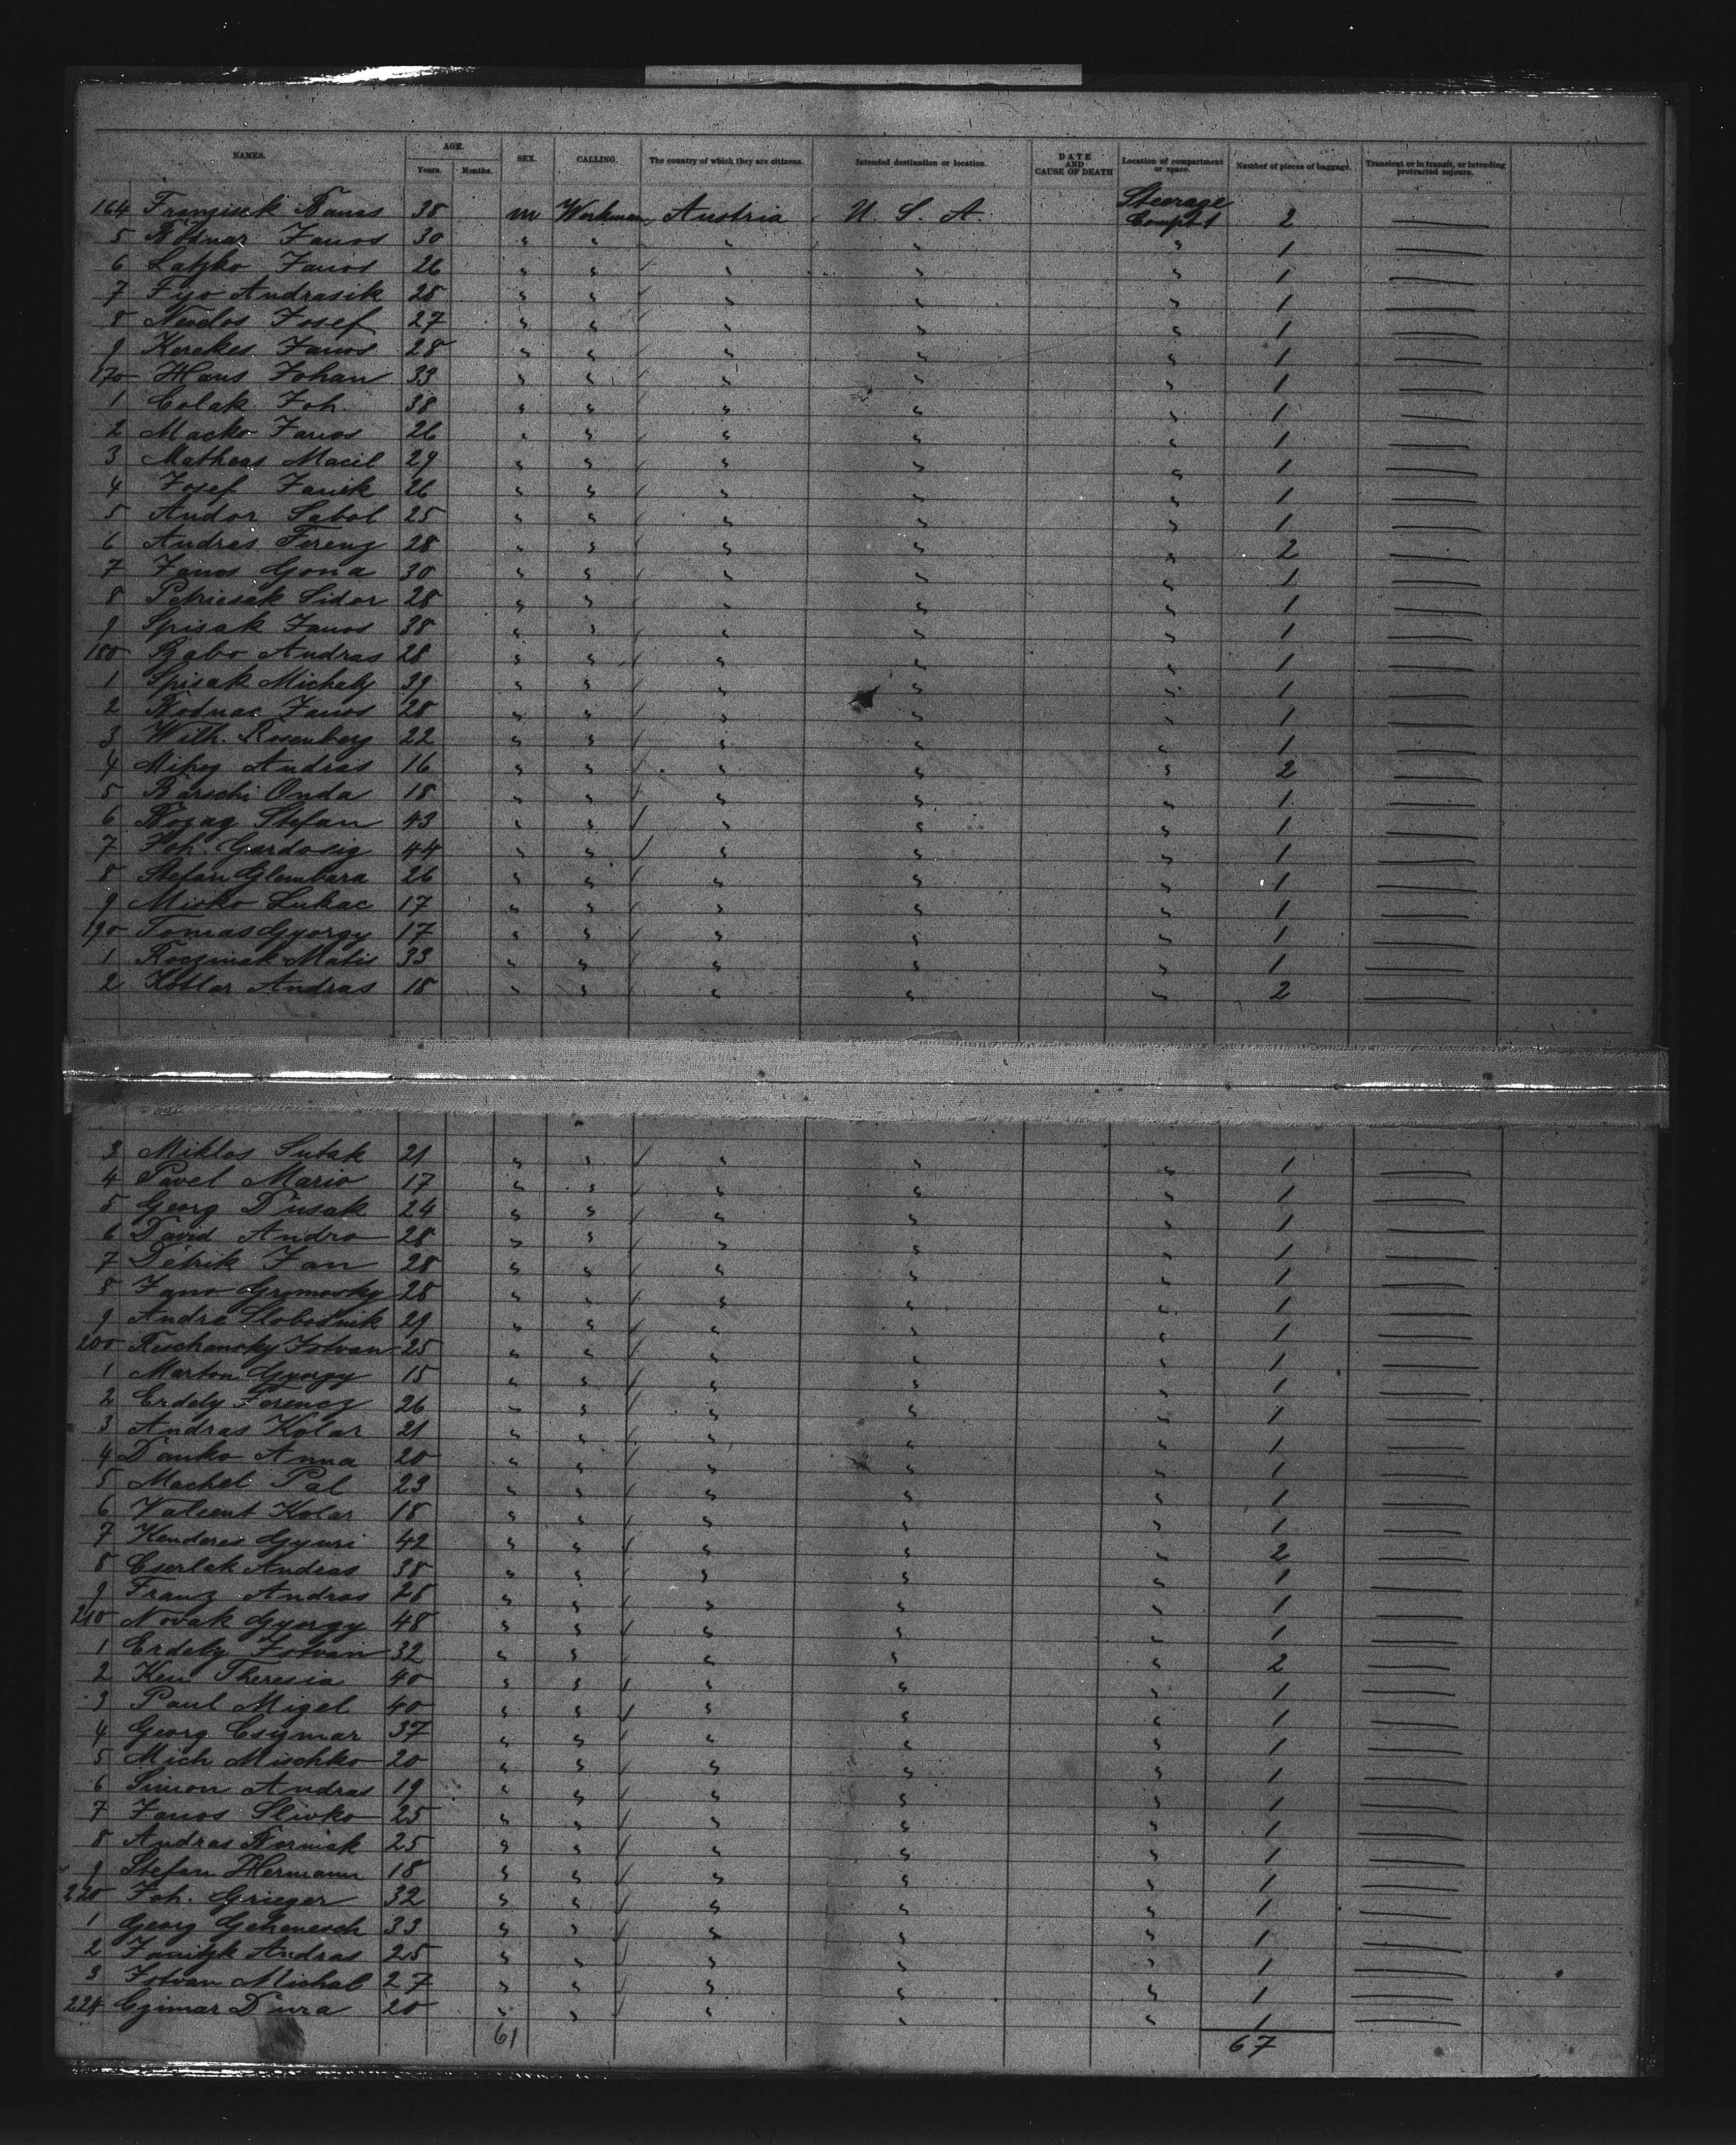 NAMES. AGE. SEX. CALLING. The country of which they are citizens. Intended destination or location. DATE AND CAUSE OF DEATH Location of compartment or space. Number of pieces of baggage. Transient or in transit, or intending protracted sojourn.
Years. Months.
164 Franzisek Banas 38 m Workman Austria U. S. A. Steerage Compt 1 2
5 Bodnar Janos 30 " " " " " 1
6 Latzko Janos 26 " " " " " 1
7 Fijo Andrasik 28 " " " " " 1
8 Josef 27 " " " " " 1
9 Kerekes Janos 28 " " " " " 1
170 Hans Johan 33 " " " " " 1
1 Colak Joh. 38 " " " " " 1
2 Macko Janos 26 " " " " " 1
3 Matheas Macil 29 " " " " " 1
4 Josef Janik 26 " " " " " 1
5 Andor Sabol 25 " " " " " 1
6 Andras Ferenz 28 " " " " " 2
7 Janos Gona 30 " " " " " 1
8 Petricsak Sidor 28 " " " " " 1
9 Spisak Janos 38 " " " " " 1
180 Szabo Andras 28 " " " " " 1
1 Spisak Michaly 39 " " " " " 1
2 Bodnar Janos 28 " " " " " 1
3 Wilh. Rosenberg 22 " " " " " 1
4 Andras 16 " " " " " 2
5 Barschi Onda 18 " " " " " 1
6 Stefan 43 " " " " " 1
7 Joh. Gardosig 44 " " " " " 1
8 Stefan Glembara 26 " " " " " 1
9 Misko Lukac 17 " " " " " 1
190 Tomas Gyorgy 17 " " " " " 1
1 Roczmak Matis 33 " " " " " 1
2 Kotlar Andras 18 " " " " " 2
3 Miklos Sutak 21 " " " " " 1
4 Pavel Mario 17 " " " " " 1
5 Georg Dusak 24 " " " " " 1
6 David Andro 28 " " " " " 1
7 Detrik Jan 28 " " " " " 1
8 Jano Gromosky 28 " " " " " 1
9 Andre Slobodnik 29 " " " " " 1
200 Istvan 25 " " " " " 1
1 Marton Gyorgy 15 " " " " " 1
2 Erdely Ferencz 26 " " " " " 1
3 Andras Kolar 21 " " " " " 1
4 Danko Anna 20 " " " " " 1
5 Machel Pal 23 " " " " " 1
6 Valent Kolar 18 " " " " " 1
7 Kenderes Gyuri 42 " " " " " 2
8 Cserlak Andras 38 " " " " " 1
9 Franz Andras 28 " " " " " 1
210 Novak Gyorgy 48 " " " " " 1
1 Erdely Istvan 32 " " " " " 2
2 Theresia 40 " " " " " 1
3 Paul Migel 40 " " " " " 1
4 Georg Csizmar 37 " " " " " 1
5 Mich Mischko 20 " " " " " 1
6 Simon Andras 19 " " " " " 1
7 Janos Slivko 25 " " " " " 1
8 Andras 25 " " " " " 1
9 Stefan Hermann 18 " " " " " 1
220 Joh. Grieger 32 " " " " " 1
1 Georg 33 " " " " " 1
2 Andras 25 " " " " " 1
3 Istvan Michal 27 " " " " " 1
224 Czimar Dura 20 " " " " " 1
61 67